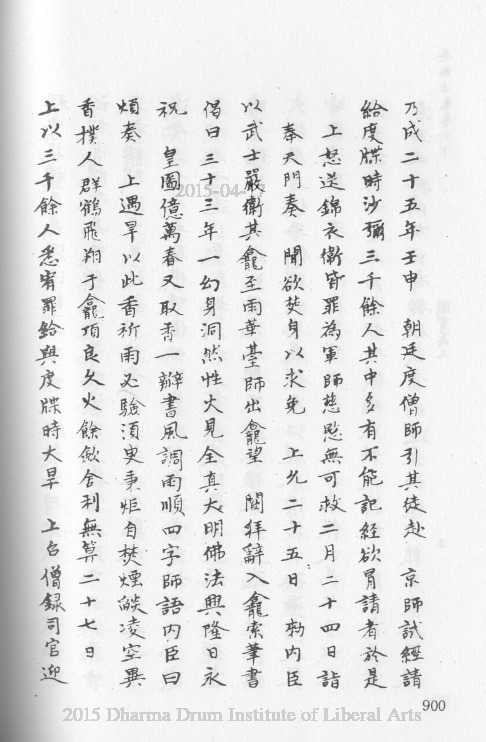 乃成二十五年壬申　朝廷度僧師引其徒赴　京師試經請
給度牒時沙彌三千餘人其中多有不能記經欲冒請者於是
上怒送錦衣衛皆罪為軍師慈愍無可救二月二十四日詣
奉天門奏　聞欲焚身以求免　上允二十五日勅內臣
以武士嚴衛其龕至雨華臺師出龕望　闕拜辭入龕索筆書
偈曰三十三年一幻身洞然性火見全真大明佛法興隆日永
祝　皇圖億萬春又取香一瓣書風調雨順四字師語內臣曰
煩奏　上遇旱以此香祈雨必驗須臾秉炬自焚煙燄凌空異
香撲人群鶴飛翔于龕頂良久火餘斂舍利無算二十七日
上以三千餘人悉宥罪給與度牒時大旱　上召僧錄司官迎
900
2015-04-
2015 Dharma Drum Institute of Liberal Arts